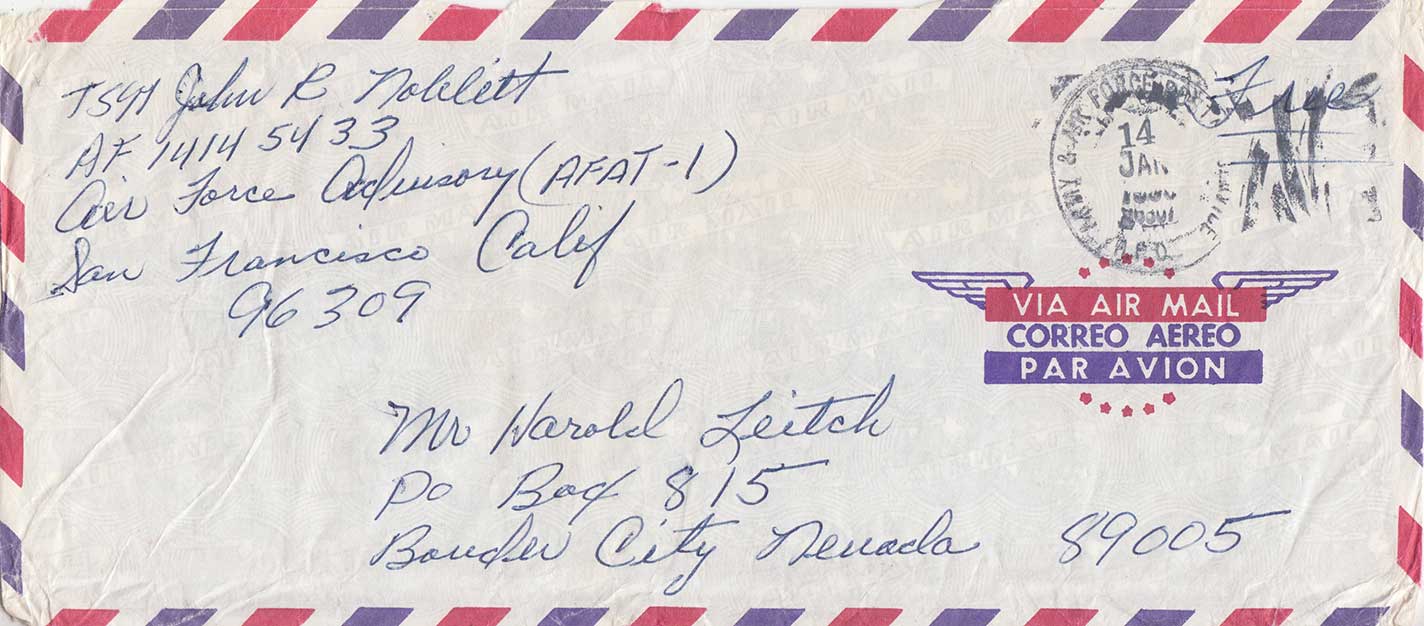 TSgt John R Noblitt
AF 14145433
Air Force Advisory (AFAT-1)
San Francisco Calif
96309
Free
ARMY & AIR FORCE POSTAL
14
JAN
A.P.O.
VIA AIR MAIL
CORREO AEREO
PAR AVION
Mr Harold Leitch
PO Box 815
Bouder City Nevada 89005